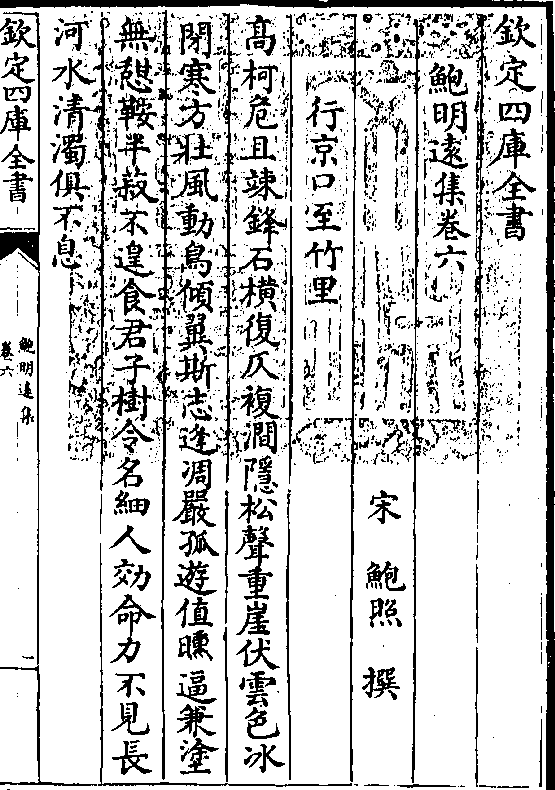 欽定四庫全書
鮑明遠集卷六
宋　鮑照　撰
行京口至竹里
高柯危且竦鋒石橫復仄複澗隱松聲重崖伏雲色冰
閉寒方壯風動鳥傾翼斯志逢凋嚴孤遊值曛逼兼塗
無憇鞍半菽不遑食君子樹令名細人効命力不見長
河水清濁俱不息
欽定四庫全書
鮑明遠集
卷六
一